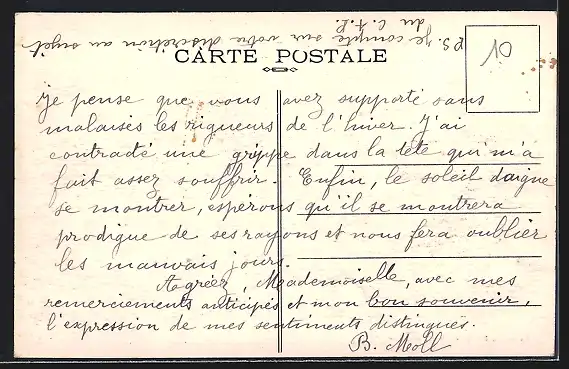 P.S. Je compte sur votre discrétion au sujet
du C. A. P.
CARTE POSTALE
10
Je pense que vous avez supporté sans
malaises les rigueurs de l'hiver. J'ai
contracté une grippe dans la tête qui m'a
fait assez souffrir. Enfin, le soleil daigne
se montrer, espérons qu'il se montrera
prodigue de ses rayons et nous fera oublier
les mauvais jours.
Agréez, Mademoiselle, avec mes
remerciements anticipés et mon bon souvenir,
l'expression de mes sentiments distingués.
B. Moll